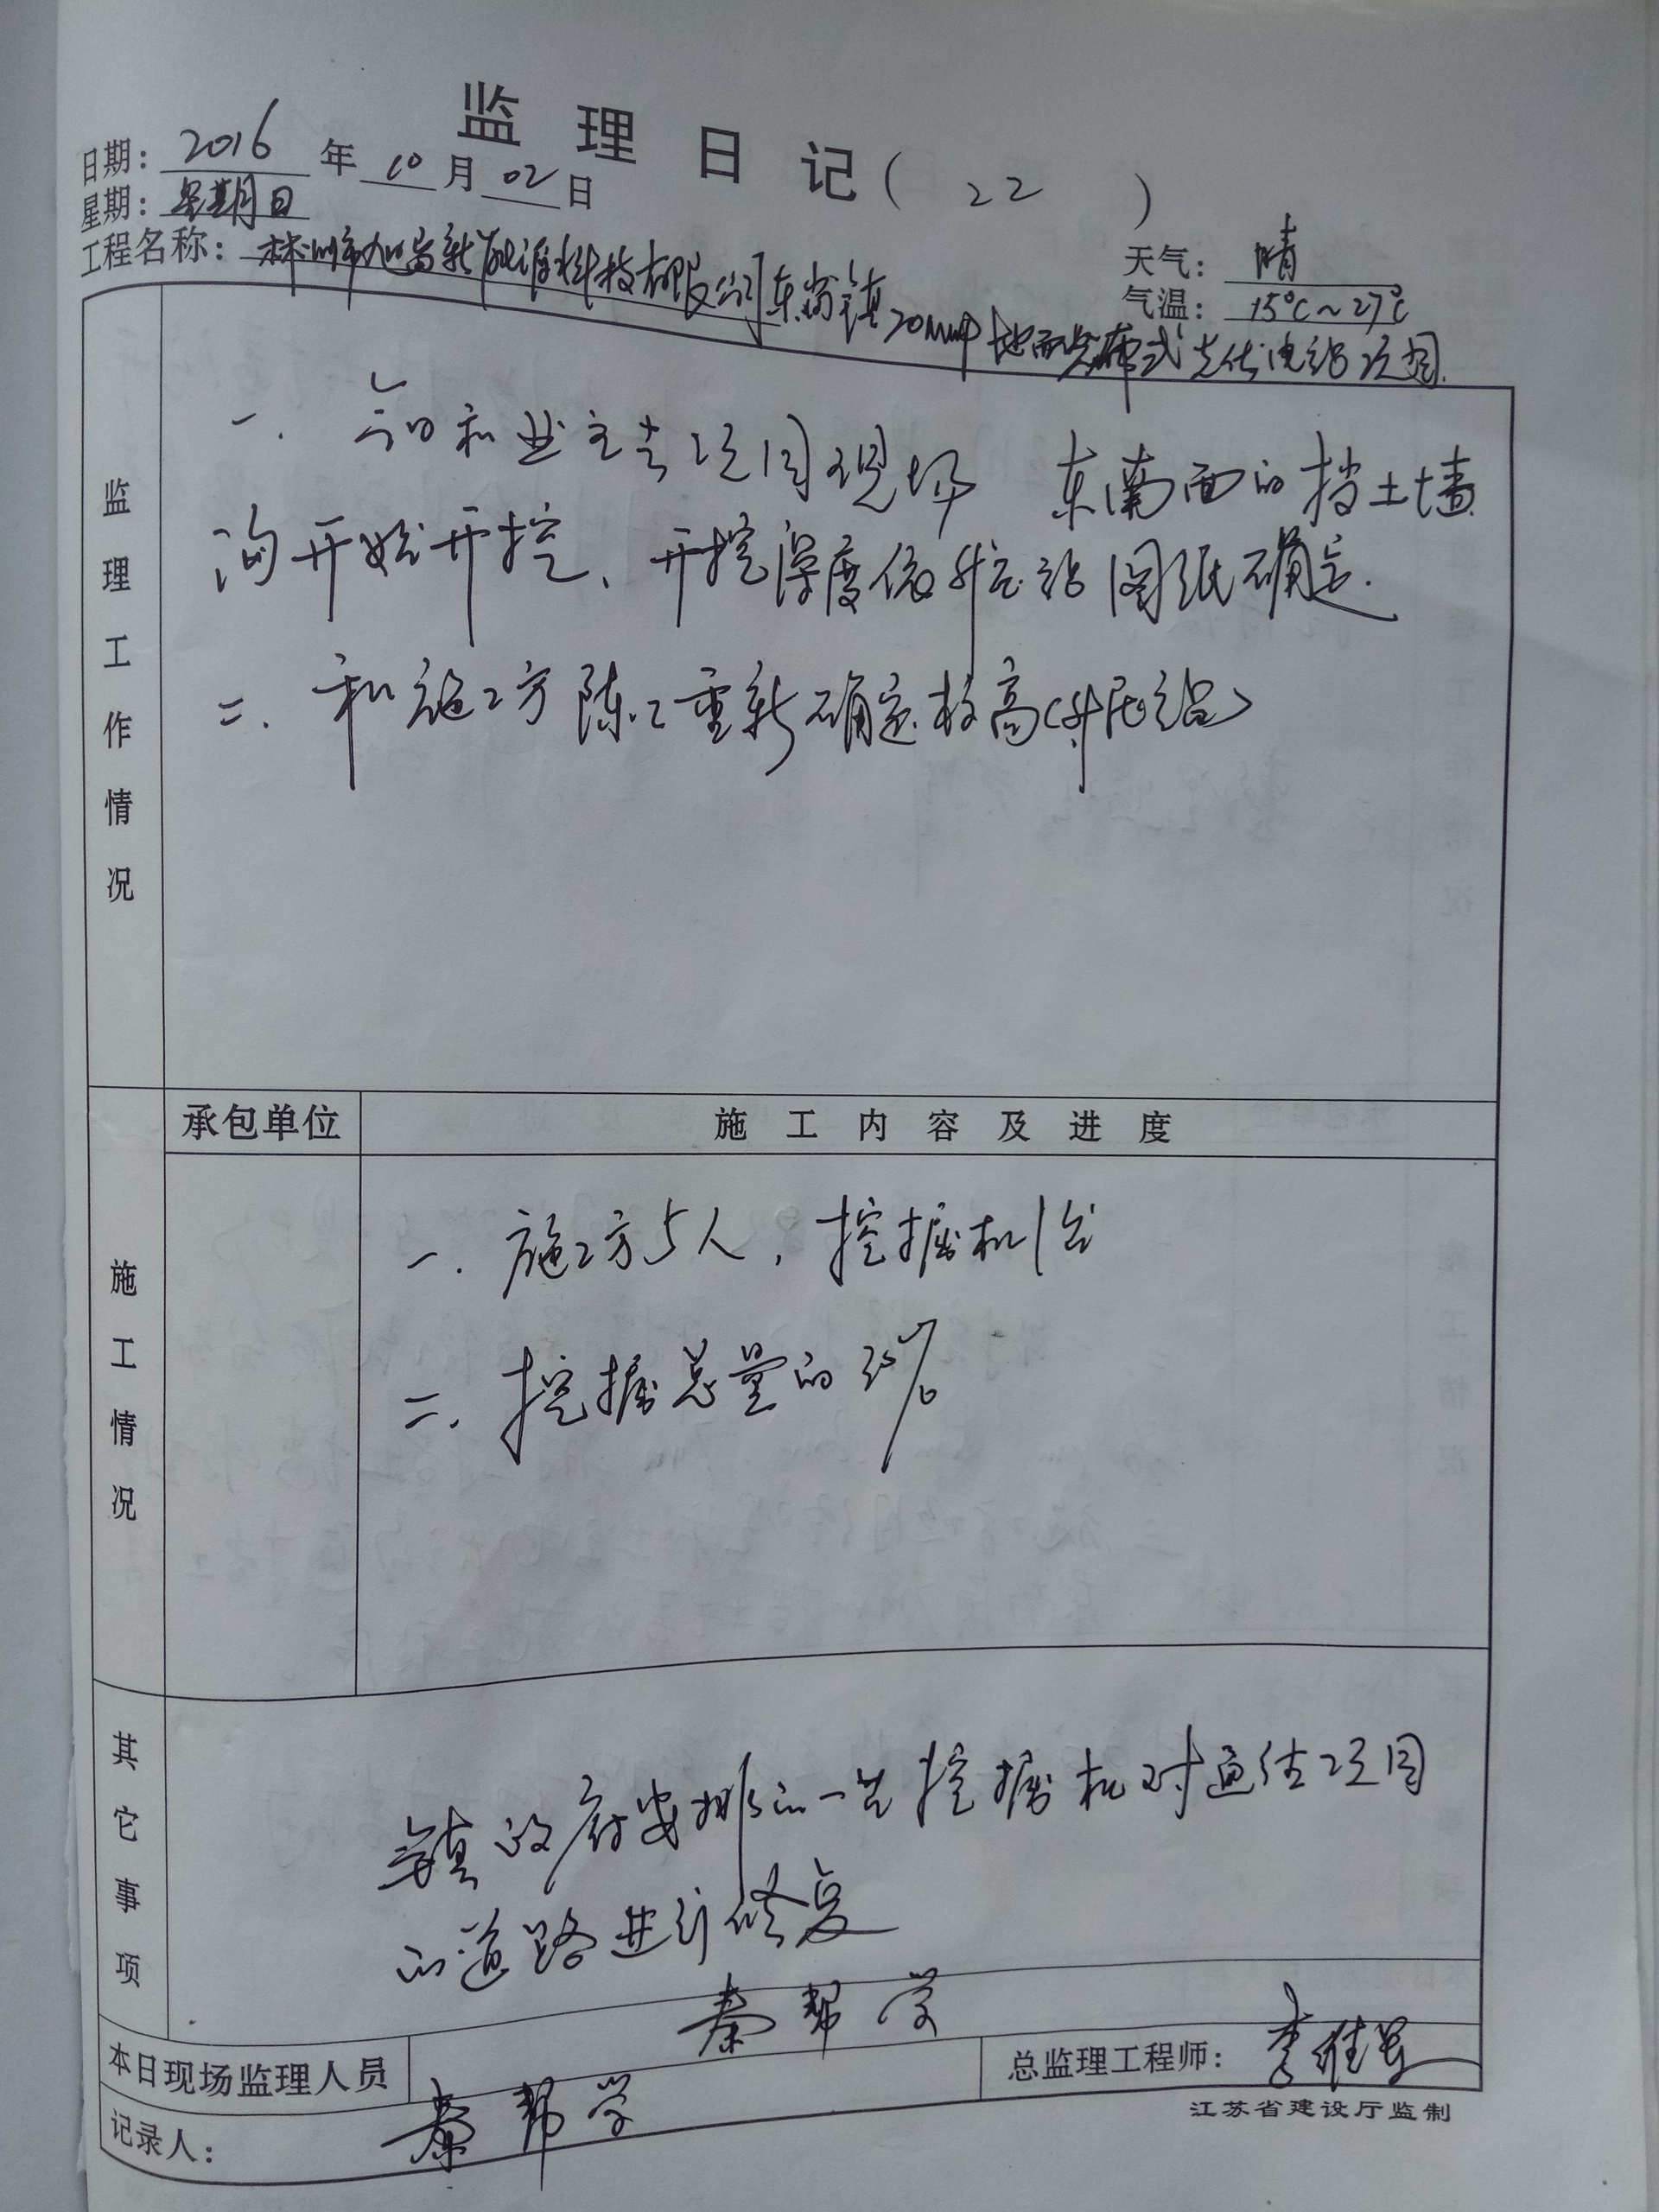 监理日记(22)
日期：2016年10月02日
星期：星期日
天气：晴
工程名称：林州市旭高新能源科技有限公司东岗镇20MWP地面分布式光伏电站项目
气温：15℃～27℃
监理工作情况
一. 今日和业主去项目现场 东南面的挡土墙
沟开始开挖、开挖深度依升压站图纸确定.
二. 和施工方陈工重新确定标高(升压站)
承包单位 施工内容及进度
施工情况
一. 施工方5人，挖掘机1台
二. 挖掘总量的
其它事项
镇政府安排的一台挖掘机对通往项目
的道路进行修复
秦帮学
本日现场监理人员 总监理工程师：李
记录人：秦帮学
江苏省建设厅监制